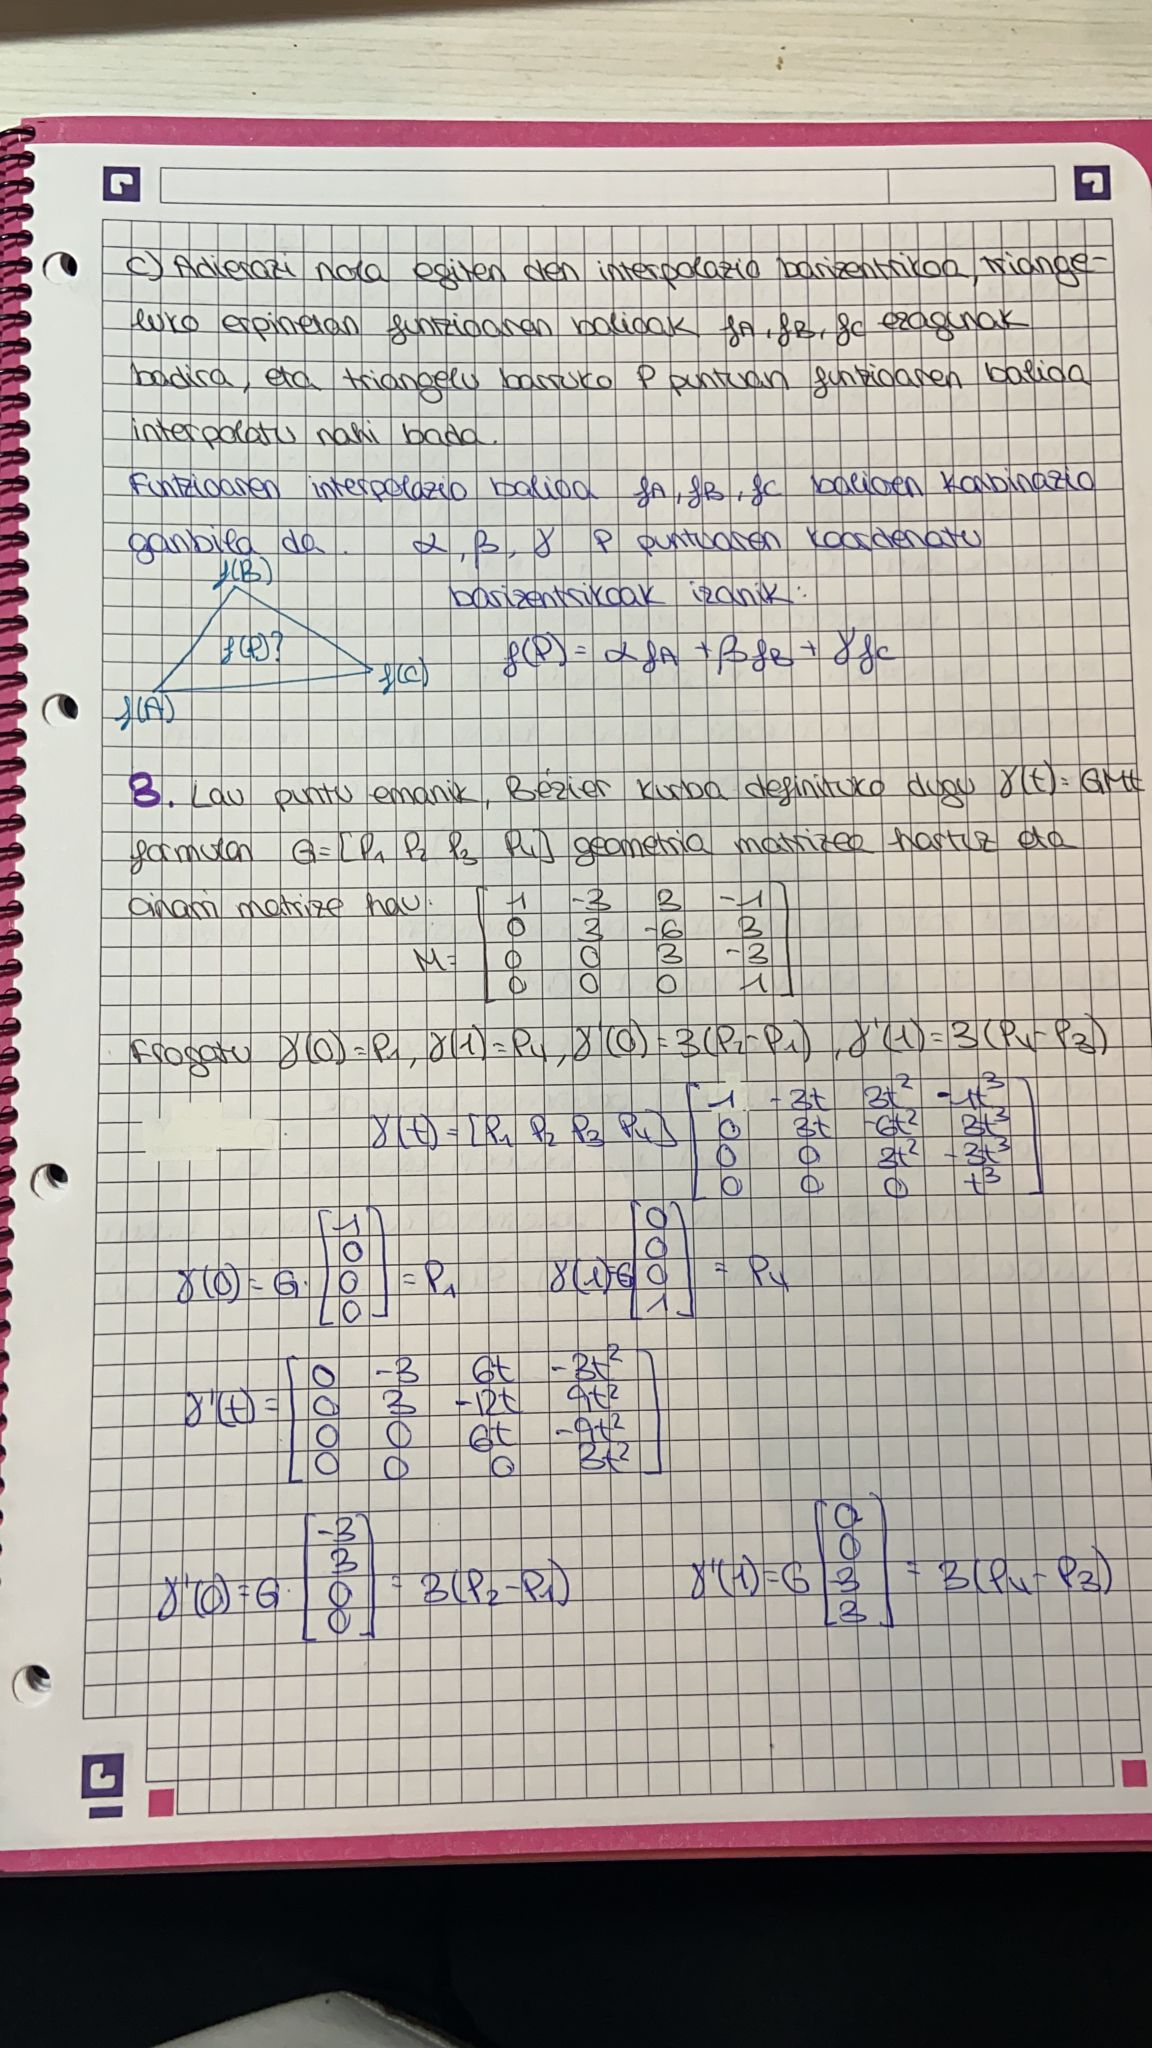 c) Adierazi nola egiten den interpolazio barizentrikoa, triange-
luko erpinetan funtzioaren balioak fA, fB, fC ezagunak
badira, eta triangelu barruko P puntuan funtzioaren balioa
interpolatu nahi bada.
Funtzioaren interpolazio balioa fA, fB, fC balioen konbinazio
ganbila da. α, β, γ P puntuaren koordenatu
barizentrikoak izanik:
f(B)
f(P)?
f(C)
f(A)
f(P) = α fA + β fB + γ fC
3. Lau puntu emanik, Bézier kurba definituko dugu γ(t) = GMt
formulan G = [P1 P2 P3 P4] geometria matrizea hartuz eta
oinarri matrize hau:
M = [ 1 -3 3 -1
0 3 -6 3
0 0 3 -3
0 0 0 1 ]
Frogatu γ(0) = P1, γ(1) = P4, γ'(0) = 3(P2-P1), γ'(1) = 3(P4-P3)
γ(t) = [P1 P2 P3 P4] [ 1 -3t 3t² -1t³
0 3t -6t² 3t³
0 0 3t² -3t³
0 0 0 t³ ]
γ(0) = G· [ 1 0 0 0 ] = P1
γ(1) = G [ 0 0 0 1 ] = P4
γ'(t) = [ 0 -3 6t -3t²
0 3 -12t 9t²
0 0 6t -9t²
0 0 0 3t² ]
γ'(0) = G· [ -3 3 0 0 ] = 3(P2-P1)
γ'(1) = G [ 0 0 -3 3 ] = 3(P4-P3)